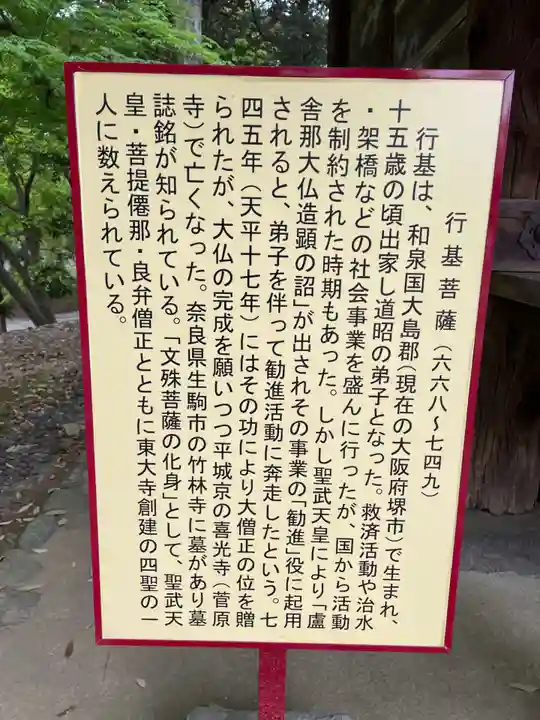 行基菩薩(六六八〜七四九)
行基は、和泉国大島郡(現在の大阪府堺市)で生まれ、
十五歳の頃出家し道昭の弟子となった。救済活動や治水
・架橋などの社会事業を盛んに行ったが、国から活動
を制約された時期もあった。しかし聖武天皇により「盧
舎那大仏造顕の詔」が出されその事業の「勧進」役に起用
されると、弟子を伴って勧進活動に奔走したという。七
四五年(天平十七年)にはその功により大僧正の位を贈
られたが、大仏の完成を願いつつ平城京の喜光寺(菅原
寺)で亡くなった。奈良県生駒市の竹林寺に墓があり墓
誌銘が知られている。「文殊菩薩の化身」として、聖武天
皇・菩提僊那・良弁僧正とともに東大寺創建の四聖の一
人に数えられている。